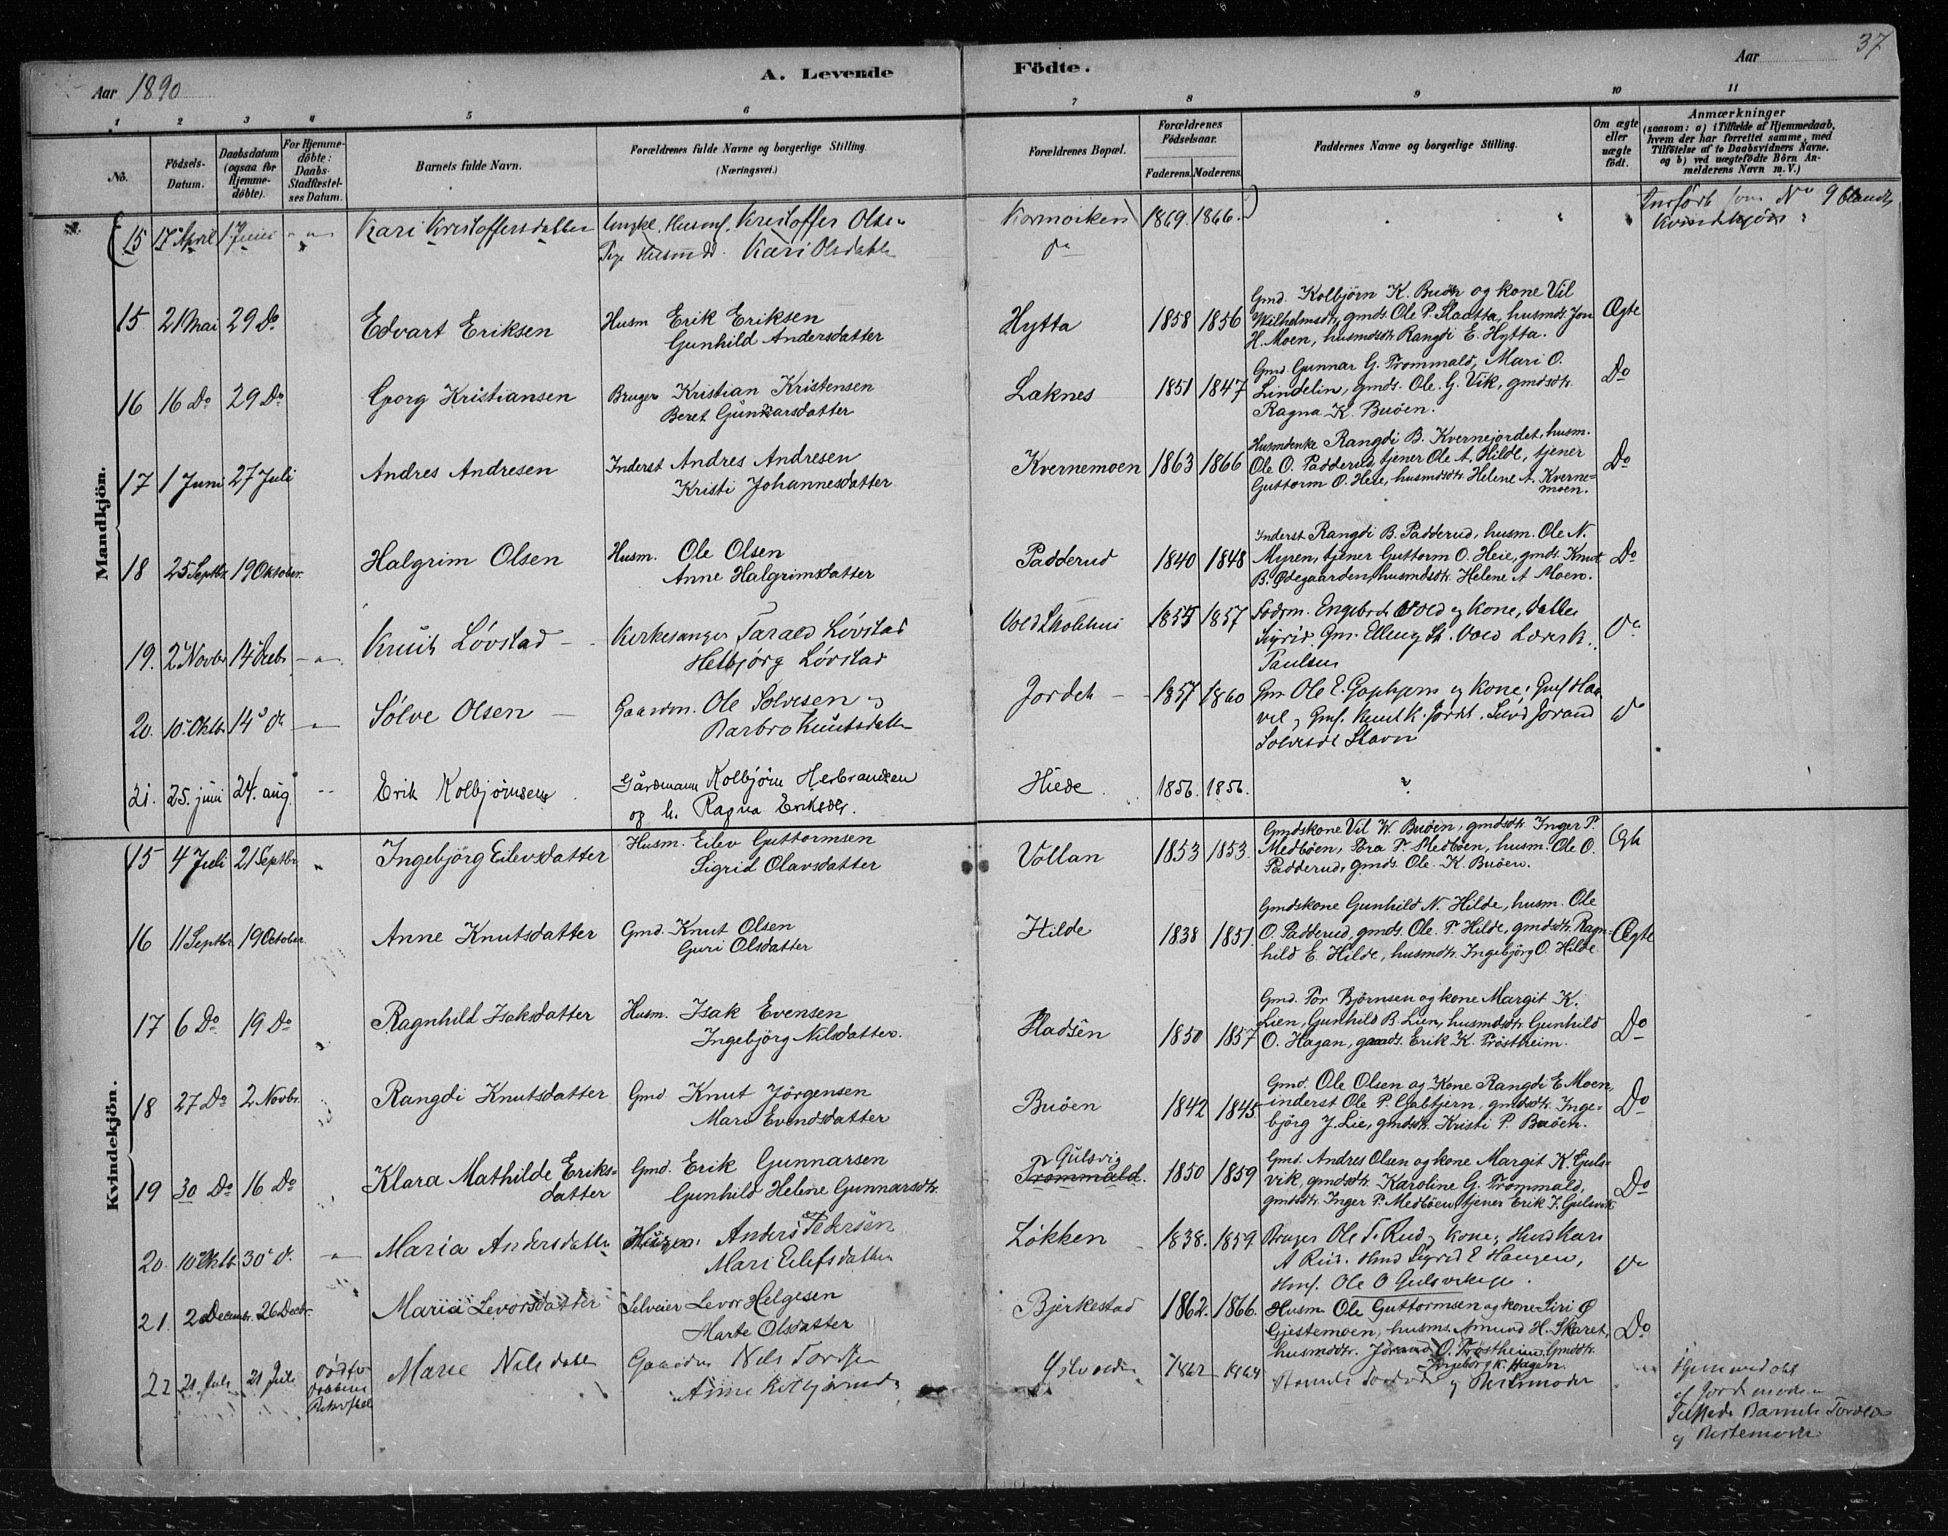 37
Aar 1890
A. Levende Födte.
Aar
1 2 3 4 5 6 7 8 9 10 11
No.
Födsels-Datum.
Daabsdatum (ogsaa for Hjemmedöbte).
For Hjemmedöbte: Daabs-Stadfæstelses Datum.
Barnets fulde Navn.
Forældrenes fulde Navne og borgerlige Stilling.
(Næringsvei.)
Forældrenes Bopæl.
Forældrenes Födselsaar.
Faderens. Moderens.
Faddernes Navne og borgerlige Stilling.
Om ægte eller uægte födt.
Anmærkninger
(saasom: a) i Tilfælde af Hjemmedaab,
hvem der har forrettet samme, med
Tilföielse af to Daabsvidners Navne.
og b) ved uægtefödte Börn Anmelderens Navn m. V.)
Mandkjön.
15 17 April 1 Juni Kari Kristoffersdatter Ungkl. Husmf. Kristoffer Olsen 1869. 1866. Indfört som No 9 blandt
Pige Husmd. Kari Olsdatter Do Kvindekjön
15 21 Mai 29 Do Edvart Eriksen Husm Erik Eriksen Hytta 1858 1856 Gmd. Kolbjörn K. Buöen og kone Vil Ægte
Gunhild Andersdatter Wilhelmsdtr, gmds. Ole P. Slaatta, husmds. Jon
H. Moen, husmdsdtr. Rangdi E. Hytta.
16 16 Do 29 Do Georg Kristiansen Bruger Kristian Kristensen Laknes 1851 1847 Gmd. Gunnar G. Trommald, Mari O. Do
Beret Gunnarsdatter Lindelin, gmds. Ole G. Vik, gmdsdtr.
Ragna K. Buöen.
17 1 Juni 27 Juli Andres Andresen Inderst Andres Andresen Kvernemoen 1863 1866 Husmdenke Rangdi B. Kvernejordet, husm. Do
Kristi Johannesdatter Ole O. Padderud, tjener Ole A. Hilde, tjener
Guttorm O. Heie, husmdsdtr. Helene A. Kvernemoen.
18 25 Septbr. 19 Oktober. Halgrim Olsen Husm. Ole Olsen Padderud 1840 1848 Inderst Rangdi B. Padderud, husm. Ole N. Do
Anne Halgrimsdatter Myren, tjener Guttorm O. Heie, gmds. Knut
B. Ødegaarden, husmdsdtr. Helene A Moen.
19. 2 Novbr 14 Decbr Knut Lövstad Kirkesanger Tarald Lövstad Vold Skolehus 1855 1857 Engebret Vold og Kone, datter Do
Helbjörg Lövstad Sigrid
Paulsen
20. 10. Oktb. 14 Do Sölve Olsen Gaardm. Ole Solvesen og Jordet 1857 1860 Gm. Ole E. og Kone, Do
Barbro Knutsdatter Knut K. Jordet. Jörand
Solvesdt Stavn
21. 25. juni 24. aug. Erik Kolbjörnsen Gårdmann Kolbjörn Herbrandsen Hiede 1856. 1856. ?
og h. Ragna Eriksdtr.
Kvindekjön.
15 4 Juli 21 Septbr Ingebjörg Eilevsdatter Husm. Eilev Guttormsen Vollan 1853 1853. Gmdskone Vil W. Buöen, gmdsdtr. Inger P. Ægte
Sigrid Olavsdatter Medböen, Tora P. Medböen, husm. Ole O.
Padderud, gmds. Ole K. Buöen.
16 11 Septbr. 19 October. Anne Knutsdatter Gmd. Knut Olsen Hilde 1838 1851 Gmdskone Gunhild N. Hilde, husm. Ole Ægte
Guri Olsdatter O. Padderud, gmds. Ole P. Hilde, gmdsdtr. Ragnhild E. Hilde, husmdtr. Ingebjörg O. Hilde.
17 6 Do 19 Do Ragnhild Isaksdatter Husm. Isak Evensen Pladsen 1850 1857 Gmd. Tor Björnsen og kone Margit K. Do
Ingebjörg Nilsdatter. Lien, Gunhild B. Lien, husmdsdtr. Gunhild
O. Hagan, gaards. Erik K. Tröstheim.
18 27 Do 2 Novbr. Rangdi Knutsdatter Gmd Knut Jörgensen Buöen 1842 1845 Gmd. Ole Olsen og Kone Rangdi E Moen, Do
Mari Evendsdatter inderst Ole P. Gabtjern, gmdsdtr. Ingebjörg J. Lie, gmdsdtr. Kristi P. Buöen.
19 30 Do 16 Do Klara Mathilde Eriksdatter Gmd. Erik Gunnarsen Gulsvig Trommald. 1850 1859 Gmd. Andres Olsen og kone Margit K. Gulsvik, gmdsdtr. Karoline G. Trommald, Do
Gunhild Helene Gunnarsdtr. gmdsdtr. Inger P. Medböen, tjener Erik J. Gulsvik
20. 10 Oktb. 30 Do. Maria Andersdatter Anders Pedersen Lökken 1838. 1859. Bruger Ole T. Rud og Kone, Kari Do
Mari Eilefsdatter A Rud. Hmd Sigrid E Haugen,
Hmf. Ole O Gulsvikeje.
21. 2 Decembr. 26 Decbr. Maria Levorsdatter Selveier Levor Helgesen Bjerkestad 1862. 1866. Husm Ole Guttormsen og kone Siri Ø Do
Marte Olsdatter Gjestemoen, husms. Amund H. Skaret,
husmdtr. Jörand O. Tröstheim, Gmdtr.
Ingeborg K. Hagen.
22 21 Juli 21 Juli Marie Nilsdatter Nils Tordsen 1862 1864 og Bestemoder Hjemmedöbt
Anne Kolbjörnsd. af Jordemoderen
Tilstede Barnets
og Bestemoder